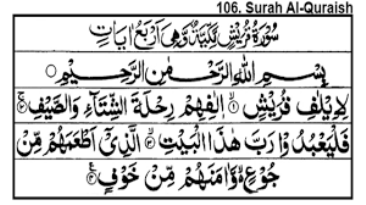 106. Surah Al-Quraish
سُوْرَةُ قُرَيْشٍ مَّكِّيَّةٌ وَّهِىَ اَرْبَعُ اٰيَاتٍ
بِسْمِ اللّٰهِ الرَّحْمٰنِ الرَّحِيْمِ ○
لِاِيْلٰفِ قُرَيْشٍ ۙ﴿۱﴾ اٖلٰفِهِمْ رِحْلَةَ الشِّتَآءِ وَالصَّيْفِ ۚ﴿۲﴾
فَلْيَعْبُدُوْا رَبَّ هٰذَا الْبَيْتِ ۙ﴿۳﴾ الَّذِىْٓ اَطْعَمَهُمْ مِّنْ
جُوْعٍ ۙ وَّاٰمَنَهُمْ مِّنْ خَوْفٍ ﴿۴﴾